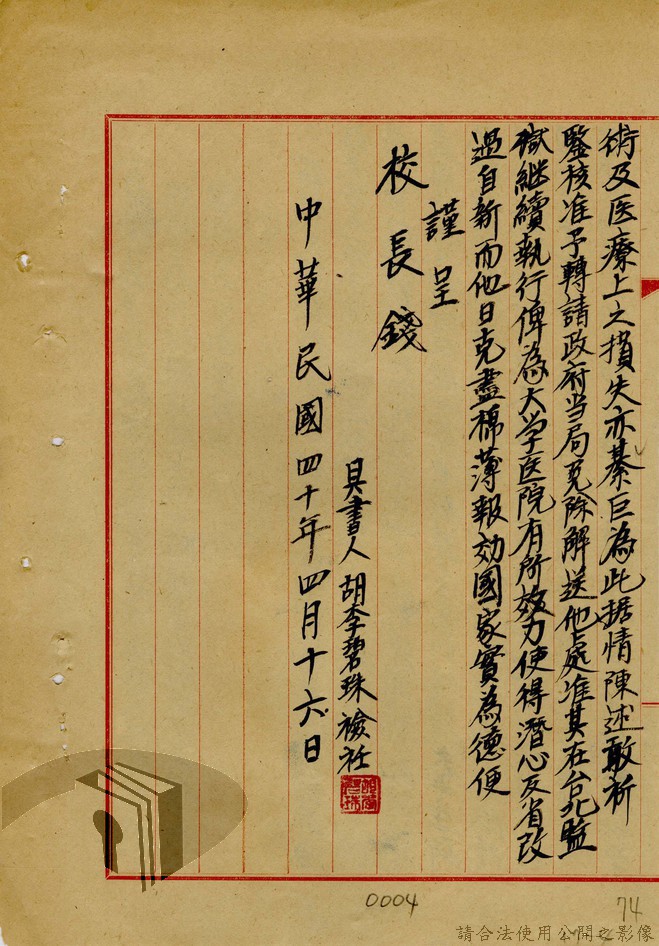 術及医療上之損失亦綦巨為此据情陳述敢祈
鑒核准予轉請政府当局免除解送他處准其在台北監
獄継續執行俾為大学医院有所效力使得潛心反省改
過自新而他日克盡棉薄報効國家實為德便
謹呈
校長錢
具書人胡李碧珠
中華民國四十年四月十六日
0004
74
請合法使用公開之影像